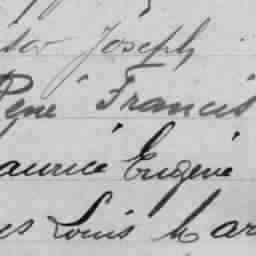 tor Joseph
René Francis
aurice Eugène
es Louis Mar